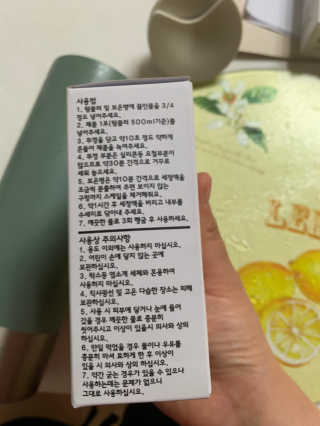 사용법
1. 텀블러 및 보온병에 끓인물을 3/4
정도 넣어주세요.
2. 제품 1포(텀블러 500ml기준)를
넣어주세요.
3. 뚜껑을 닫고 약10초 정도 약하게
흔들어 제품을 녹여주세요.
4. 뚜껑 부분은 실리콘등 오염부분이
잠길수 약30분 간격으로 거꾸로
세워 놓으세요.
5. 보온병은 약10분 간격으로 세정액을
조금씩 흔들하여 주면 보이지 않는
구석까지 스케일을 제거해줘요.
6. 약1시간 후 세정액을 버리고 내부를
수세미로 닦아내 주세요.
7. 깨끗한 물로 3회 헹굼 후 사용하세요.
사용상 주의사항
1. 용도 이외에는 사용하지 마십시오.
2. 어린이 손에 닿지 않는 곳에
보관하십시오.
3. 락스등 염소계 세제와 혼용하여
사용하지 마십시오.
4. 직사광선 및 고온 다습한 장소는 피해
보관하십시오.
5. 사용 시 피부에 닿거나 눈에 들어
갔을 경우 깨끗한 물로 충분히
씻어주시고 이상이 있을시 의사와 상의
하십시오.
6. 만일 먹었을 경우 물이나 우유를
충분히 마셔 묽게 한 후 이상이
있을 시 의사와 상의 하십시오.
7. 약간 굳는 경우가 있을 수 있으나
사용하는데는 문제가 없으니
그대로 사용하십시오.
LEM